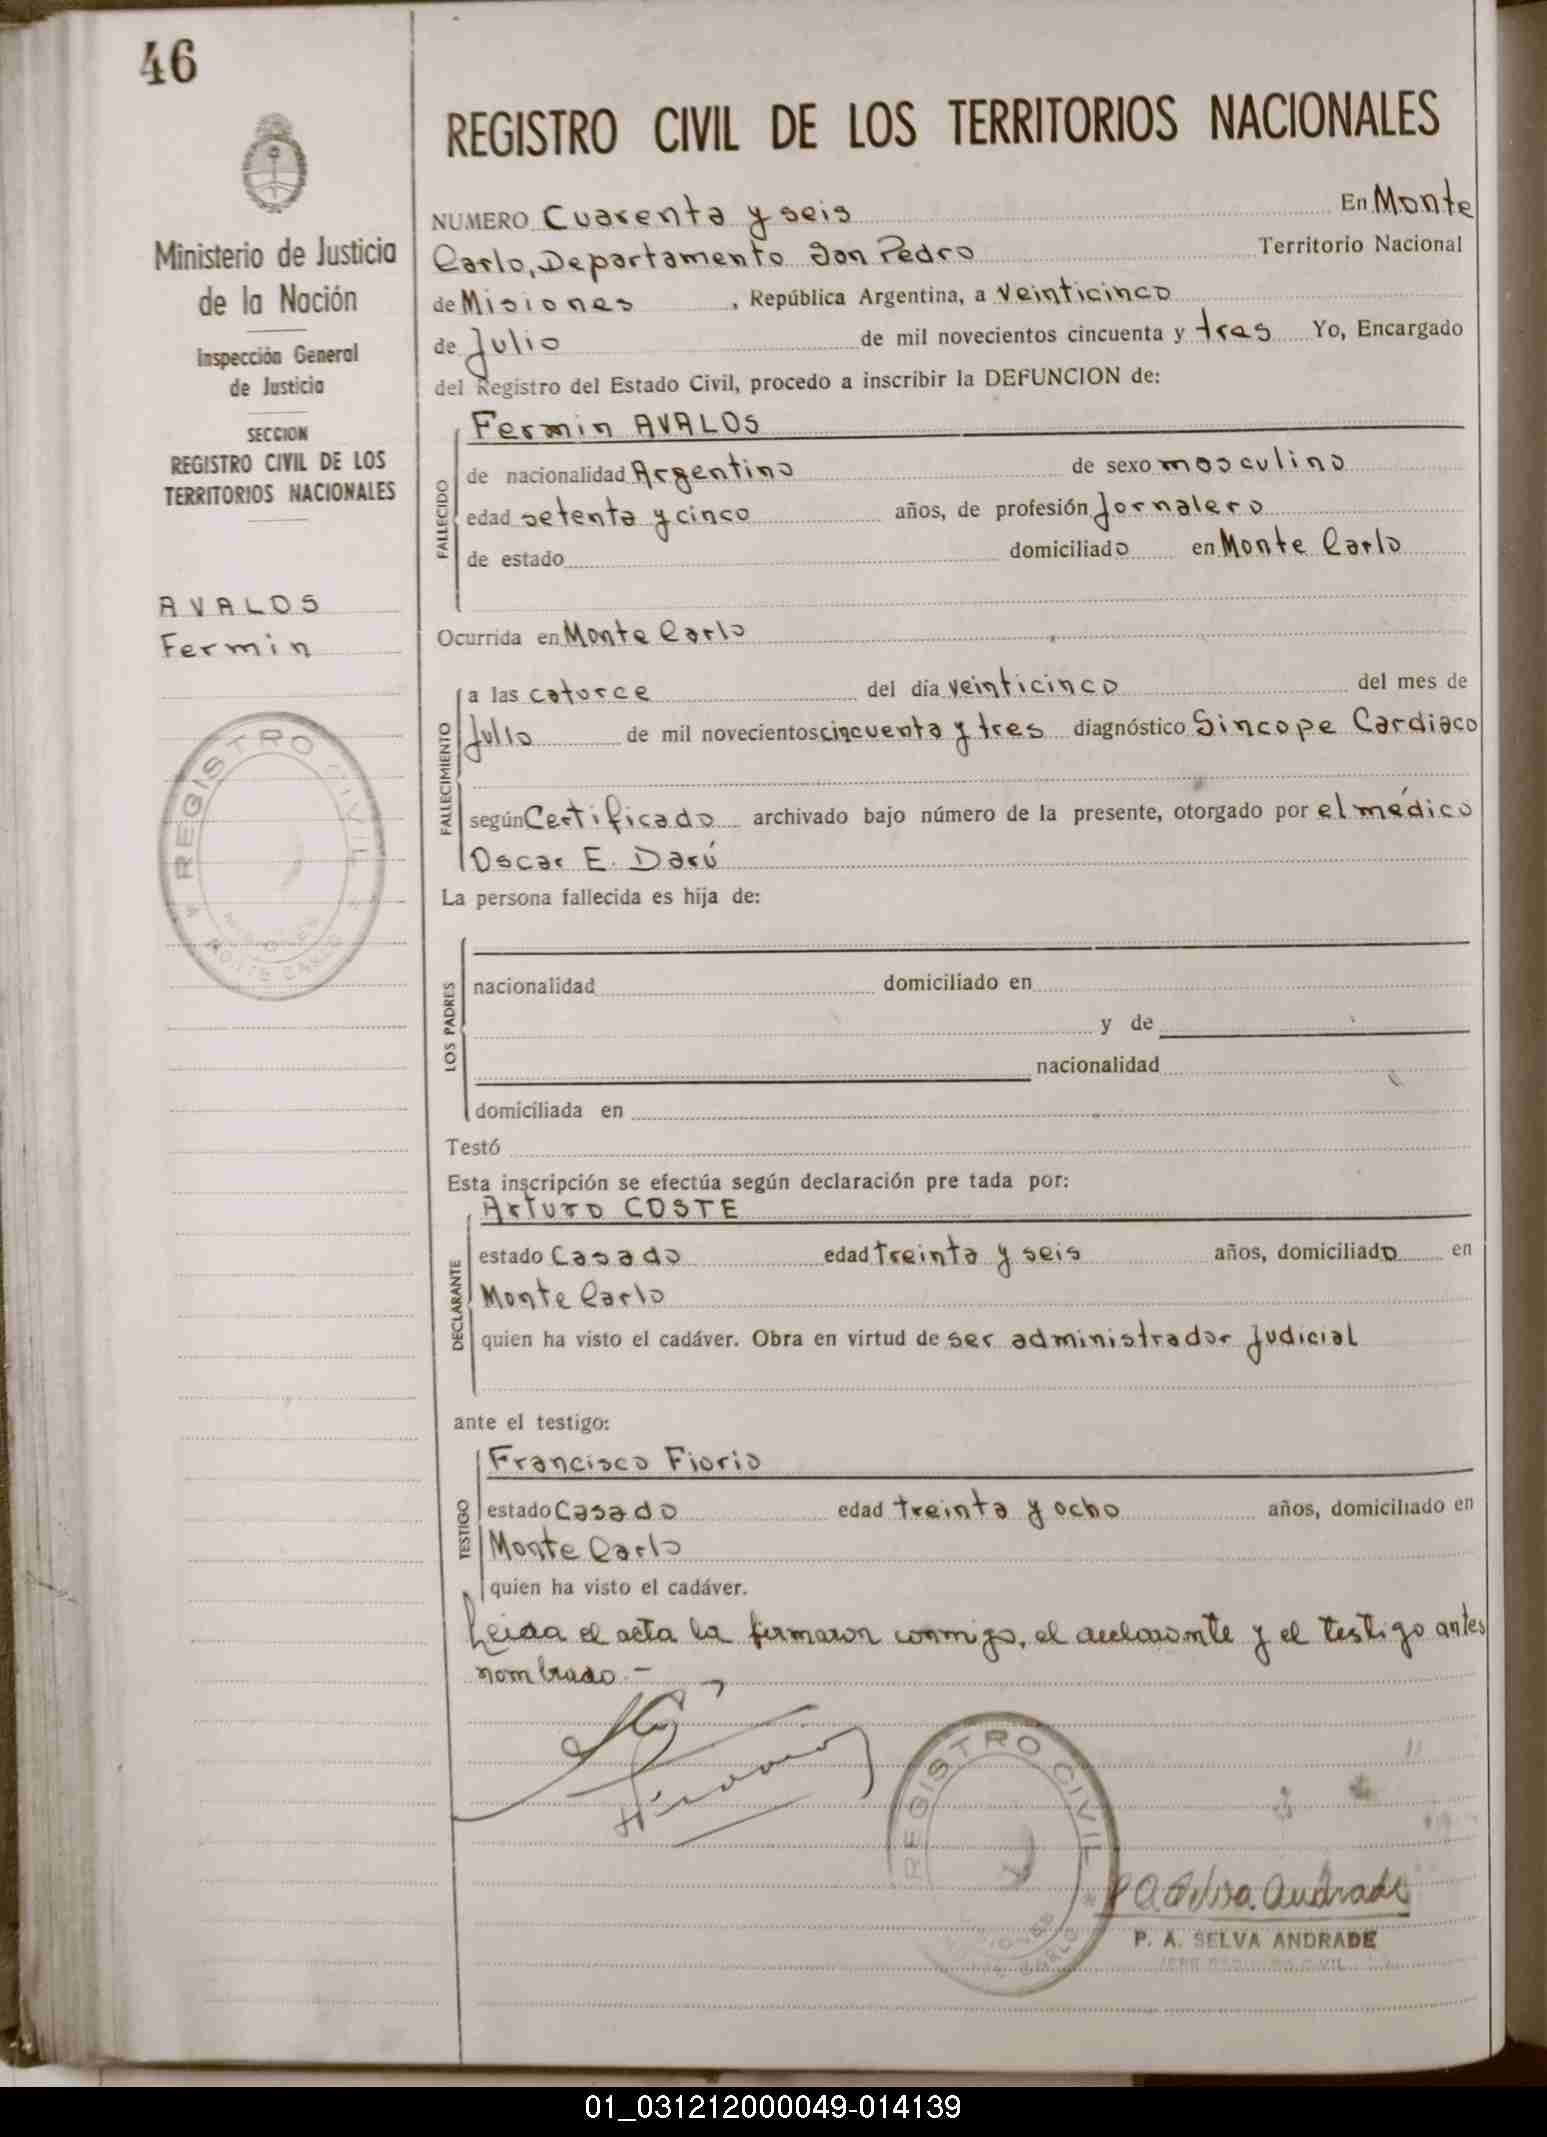 46
REGISTRO CIVIL DE LOS TERRITORIOS NACIONALES
Ministerio de Justicia
de la Nación
Inspección General
de Justicia
SECCION
REGISTRO CIVIL DE LOS
TERRITORIOS NACIONALES
AVALOS
Fermin
REGISTRO CIVIL
MISIONES
MONTE CARLO
NUMERO Cuarenta y seis En Monte
Carlo, Departamento San Pedro Territorio Nacional
de Misiones, República Argentina, a veinticinco
de Julio de mil novecientos cincuenta y tres Yo, Encargado
del Registro del Estado Civil, procedo a inscribir la DEFUNCION de:
FALLECIDO
Fermin AVALOS
de nacionalidad Argentino de sexo masculino
edad setenta y cinco años, de profesión Jornalero
de estado domiciliado en Monte Carlo
Ocurrida en Monte Carlo
FALLECIMIENTO
a las catorce del día veinticinco del mes de
Julio de mil novecientos cincuenta y tres diagnóstico Sincope Cardiaco
según Certificado archivado bajo número de la presente, otorgado por el médico
Oscar E. Darú
La persona fallecida es hija de:
LOS PADRES
nacionalidad domiciliado en
y de
nacionalidad
domiciliada en
Testó
Esta inscripción se efectúa según declaración pre tada por:
DECLARANTE
Arturo COSTE
estado Casado edad treinta y seis años, domiciliado en
Monte Carlo
quien ha visto el cadáver. Obra en virtud de ser administrador judicial
ante el testigo:
TESTIGO
Francisco Fiorio
estado Casado edad treinta y ocho años, domiciliado en
Monte Carlo
quien ha visto el cadáver.
Leida el acta la firmaron conmigo, el declarante y el testigo antes
nombrado.-
REGISTRO CIVIL
MISIONES
MONTE CARLO
P A Selva Andrade
P. A. SELVA ANDRADE
JEFE REGISTRO CIVIL
01_031212000049-014139